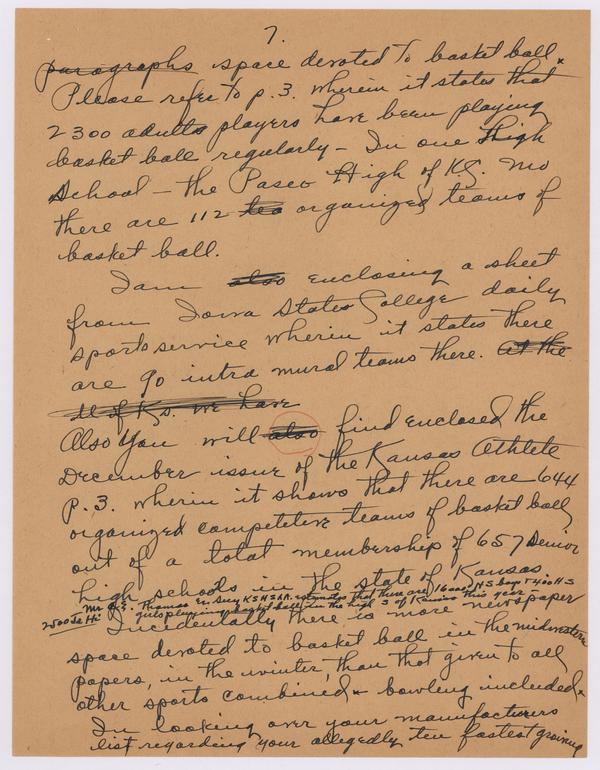 7.
paragraphs space devoted to basket ball.
Please refer to p. 3. wherein it states that
2300 adults players have been playing
basket ball regularly - In one High
School - the Paseo High of K.C. Mo
there are 112 tea organized teams of
basket ball.
I am also enclosing a sheet
from Iowa State College daily
sports service wherein it states there
are 90 intra mural teams there. At the
U of Ks. we have
Also You will also find enclosed the
December issue of the Kansas Athlete
p. 3. wherein it shows that there are 644
organized competitive teams of basket ball
out of a total membership of 657 Senior
high schools in the state of Kansas
Mr. E. Thomas Ks H.S.A.A. estimates that there are 16000 H S boys + 400 H S
2500 Jr Hi girls playing basket ball in the high S of Kansas this year -
Incidentally there is more newspaper
space devoted to basket ball in the midwestern
papers, in the winter, than that given to all
other sports combined - bowling included.
In looking over your manufacturers
list regarding your allegedly ten fastest growing